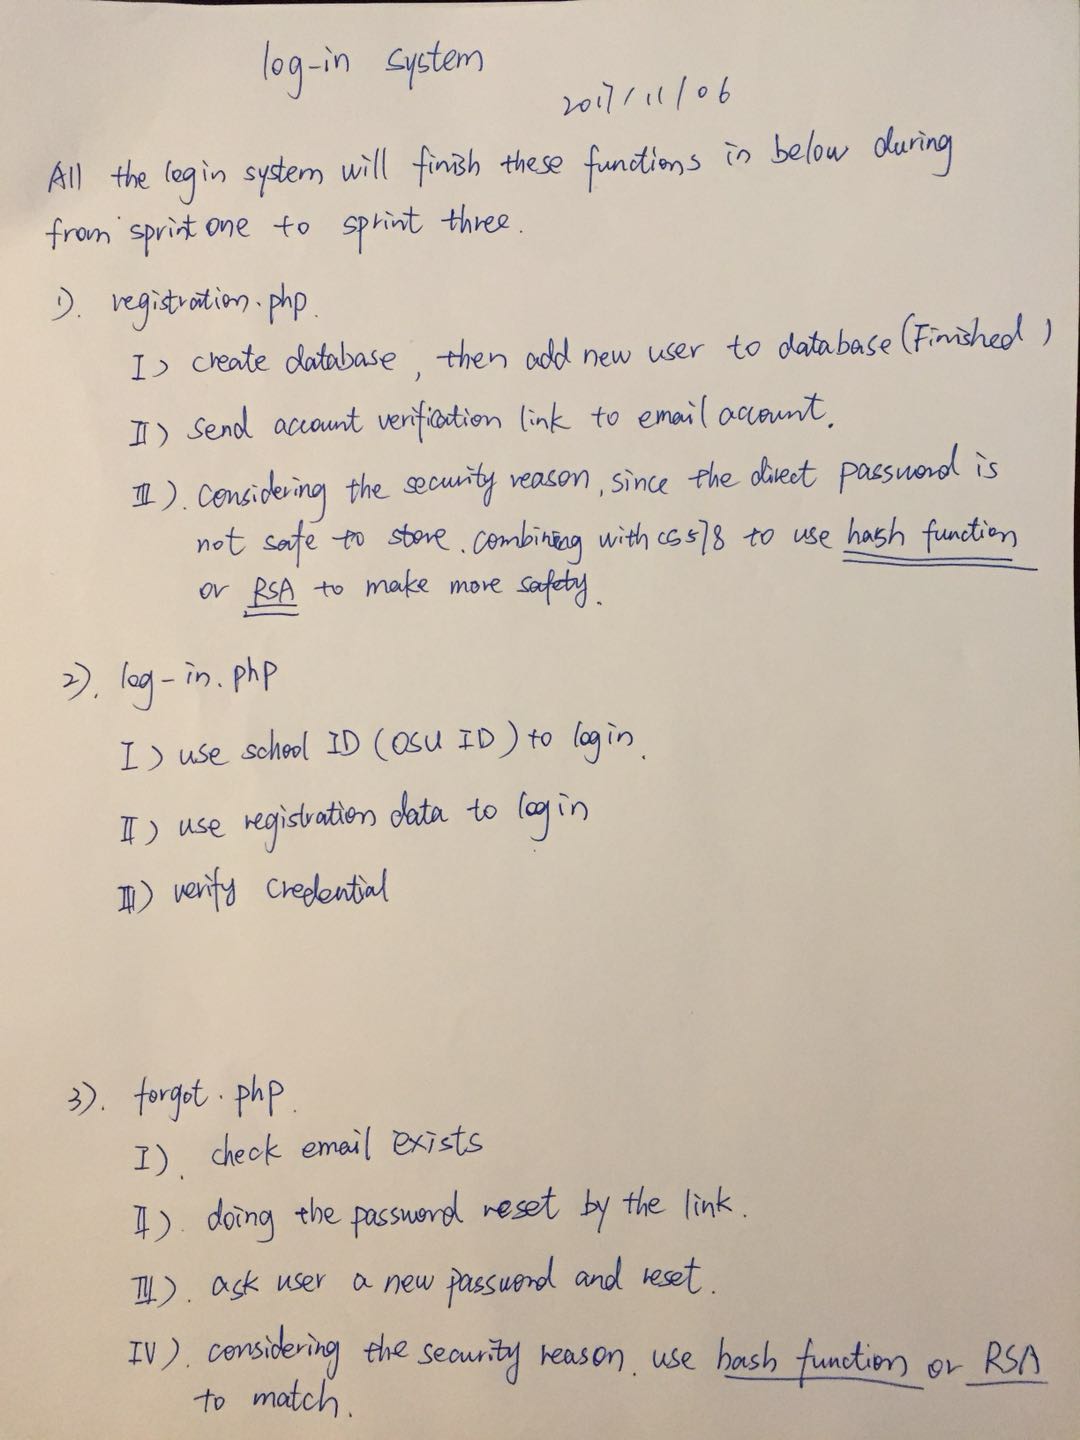 log-in system
2017/11/06
All the login system will finish these functions in below during
from sprint one to sprint three.
1). registration.php.
I) create database, then add new user to database (Finished)
II) send account verification link to email account.
III). considering the security reason, since the direct password is
not safe to store. combining with cs578 to use hash function
or RSA to make more safety.
2). log-in.php
I) use school ID (OSU ID) to login.
II) use registration data to login
III) verify credential
3). forgot.php.
I). check email exists
II). doing the password reset by the link.
III). ask user a new password and reset.
IV). considering the security reason. use hash function or RSA
to match.